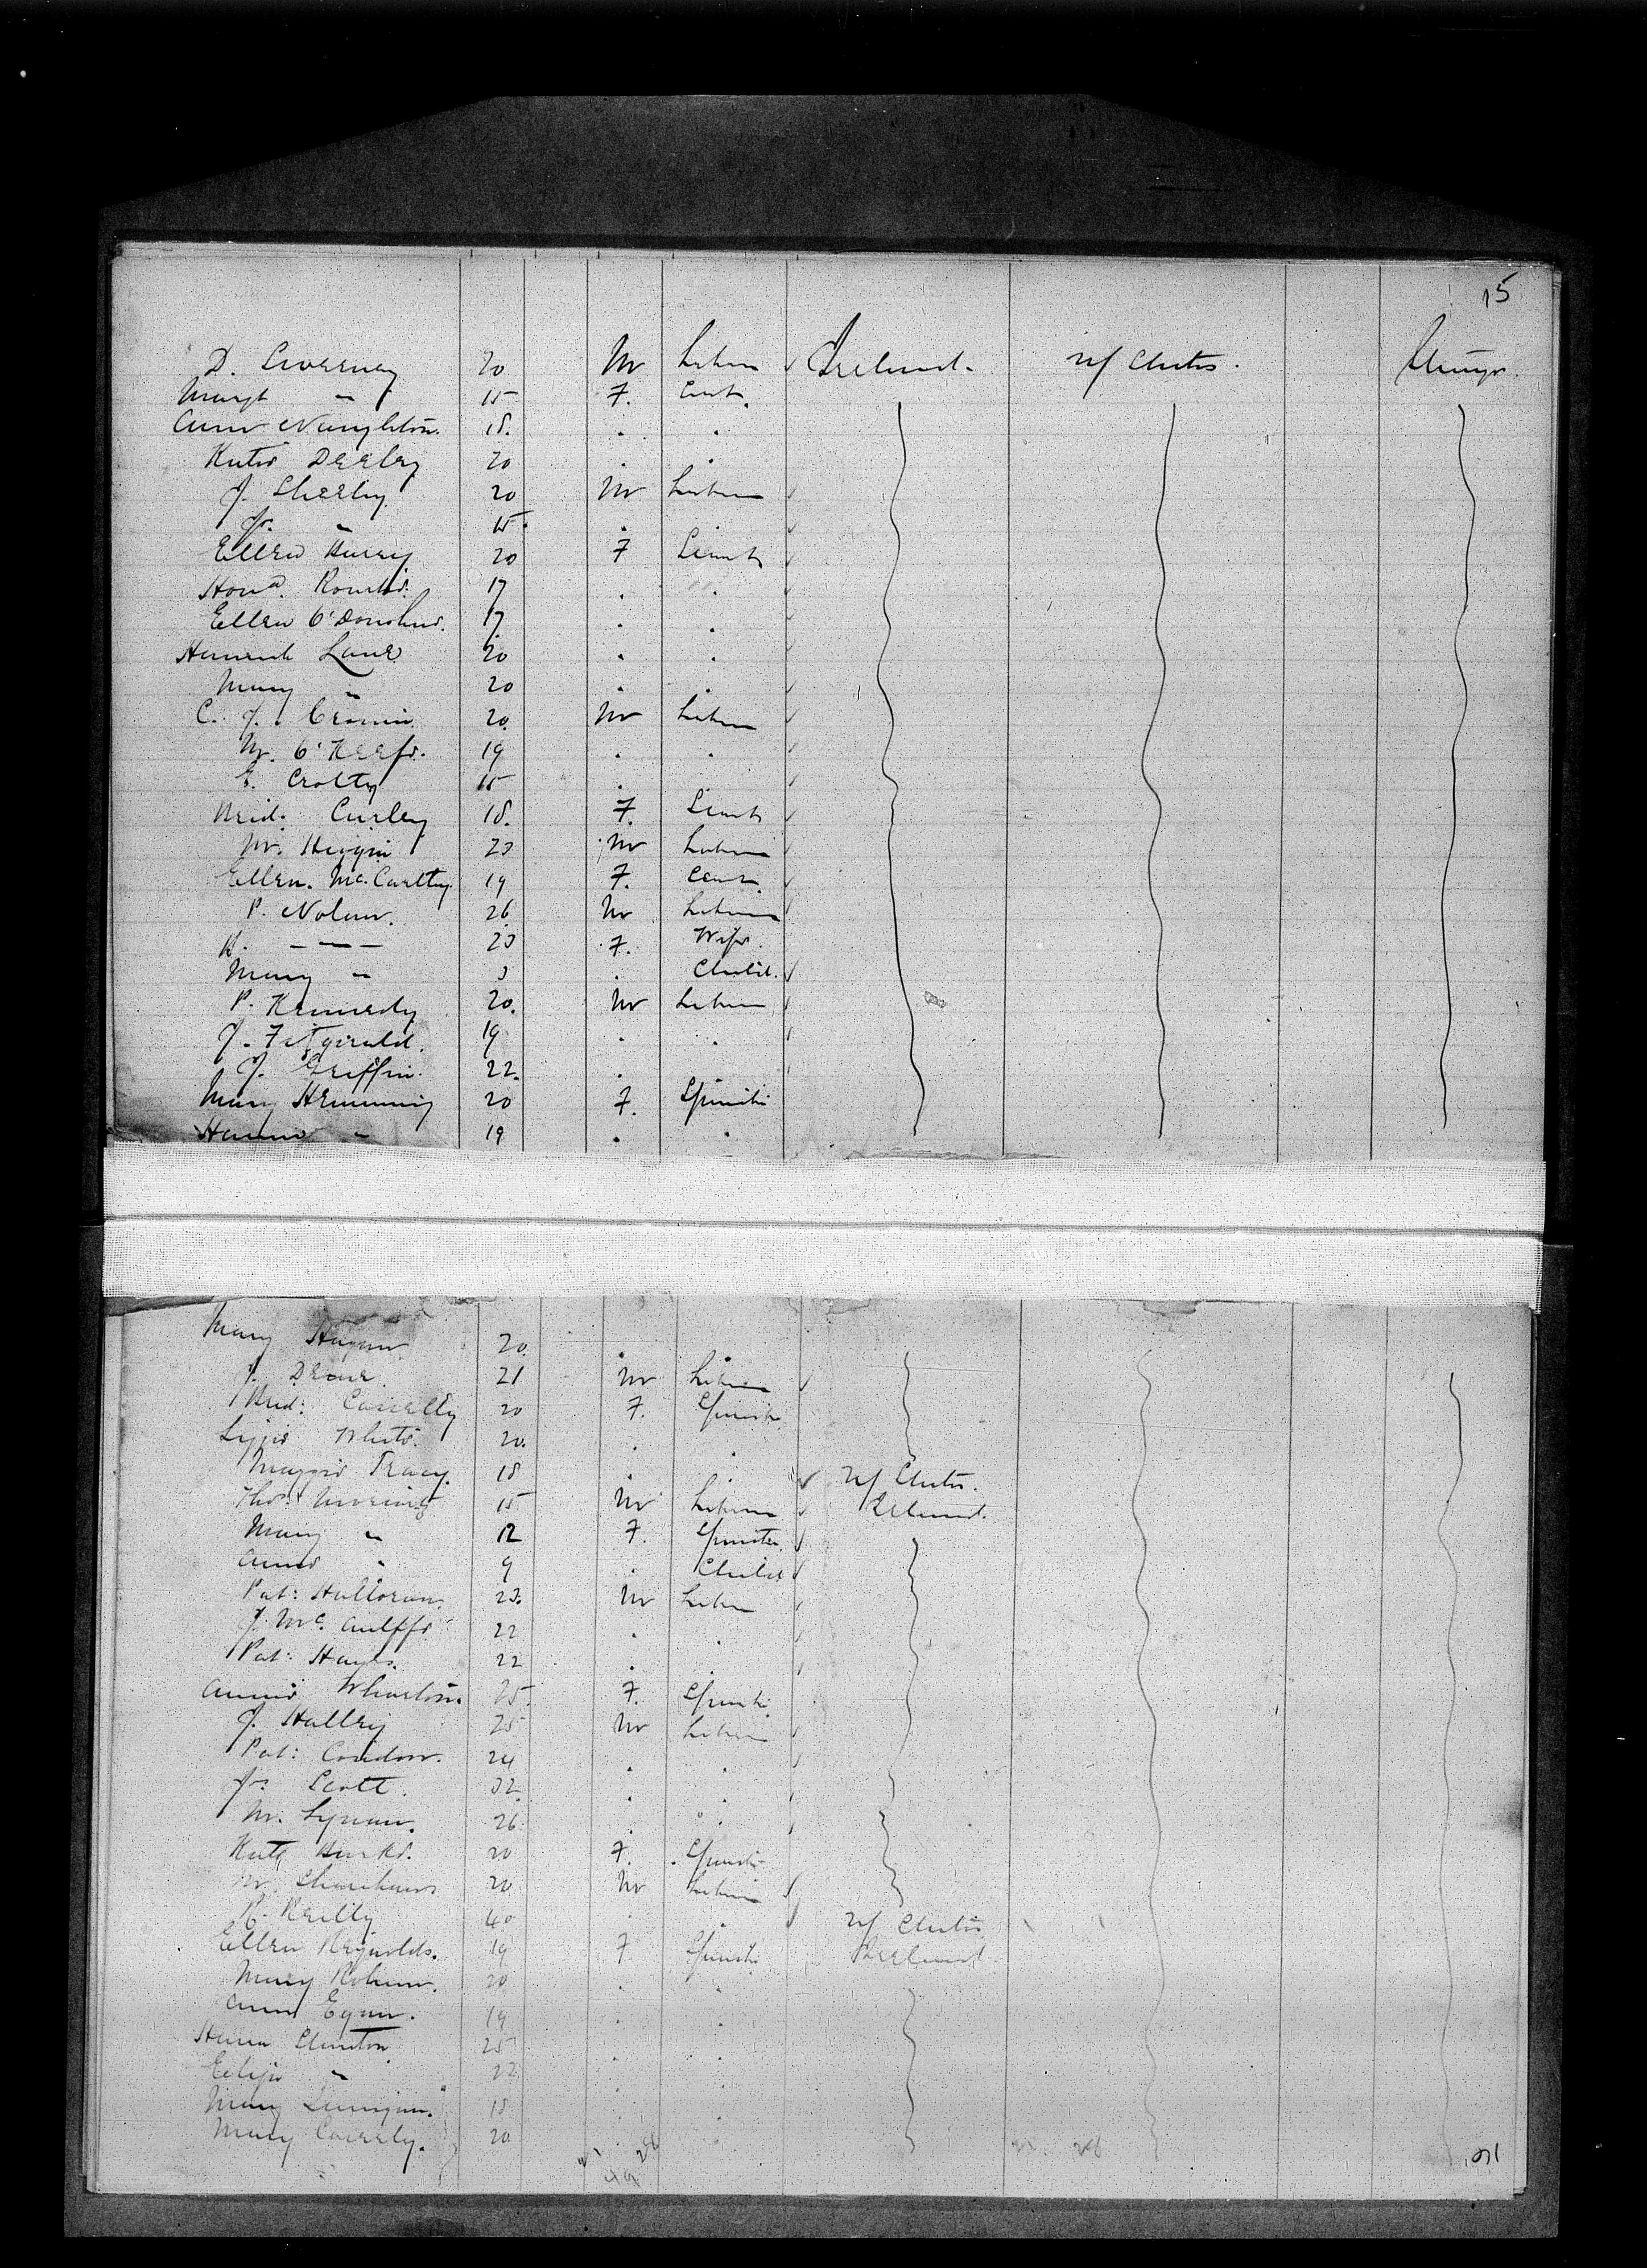 15
D. Sweeney 20 M Labour Ireland. U/ States.
Margt " 15 F. Servt.
Annie Naughton. 18. . .
Katie Deeley 20 . .
J. Sheehy 20 M Labour
Jn. " 15. .
Ellen Hurey 20 F Servt
Hona. 17 . .
Ellen O'Donohue. 17. . .
Hannah Lane 20 . .
Mary " 20 . .
C. J. Cronin 20. M Labour
M. O'Keefe. 19 . .
E. Crotty 15 .
Brid: Curley 18. F. Servt
M. Higgin 23 M Labour
Ellen. McCarthy. 19 F. Servt.
P. Nolan. 26 M Labour
K. " 23 F. Wife.
Mary " 3 . Child.
P. Kennedy 20. M Labour
J. Fitzgerald. 19 . .
J. Griffin. 22. .
Mary Hemming 20 F. Spinster
Hanna " 19 . .
Mary Hagan 20. . .
J. Deane. 21 M Labour
Brid: Caserlly 20 F. Spinster
Lizzie White. 20. . .
Maggie Tracy. 18 . U/ States.
Thos: 15 M Labour Ireland.
Mary " 12 F. Spinster.
Annie " 9 . Child
Pat: Halloran. 23. M Labour
J. McAuliffe 22 . .
Pat: Hayes. 22 . .
Annie Wharton. 25. F. Spinster
J. Halley 25 M Labour
Pat: Condon. 24 . .
Jn. Scott. 32. . .
M. Lynam. 26. . .
Kate Burke. 20 F. Spinster
M. Shanahan 20 M Labour
R. Reilly 40 . . U/ States
Ellen Reynolds. 19 F Spinster Ireland
Mary Rohan. 20 . .
Anne Egan. 19 . .
Hanna Stanton 25 . .
Eliza " 22 . .
Mary Lannigan. 18 . .
Mary Caserly. 20 . .